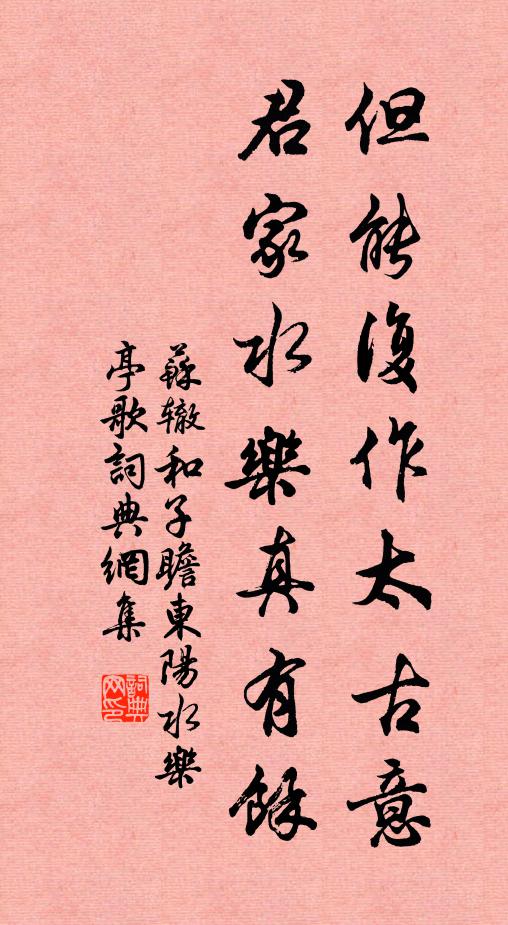 但能復作太古意
君家水樂真有餘
蘇辙和子瞻東陽水樂
亭歌詞典網集
詞典
网印